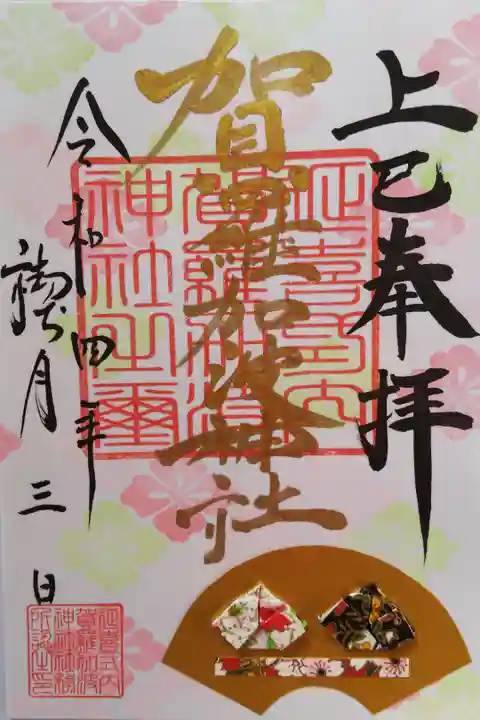 上巳奉拝
賀羅加波神社
延喜式内
賀羅加波
神社之璽
令和四年
月三日
延喜式内
賀羅加波
神社社務
所之印